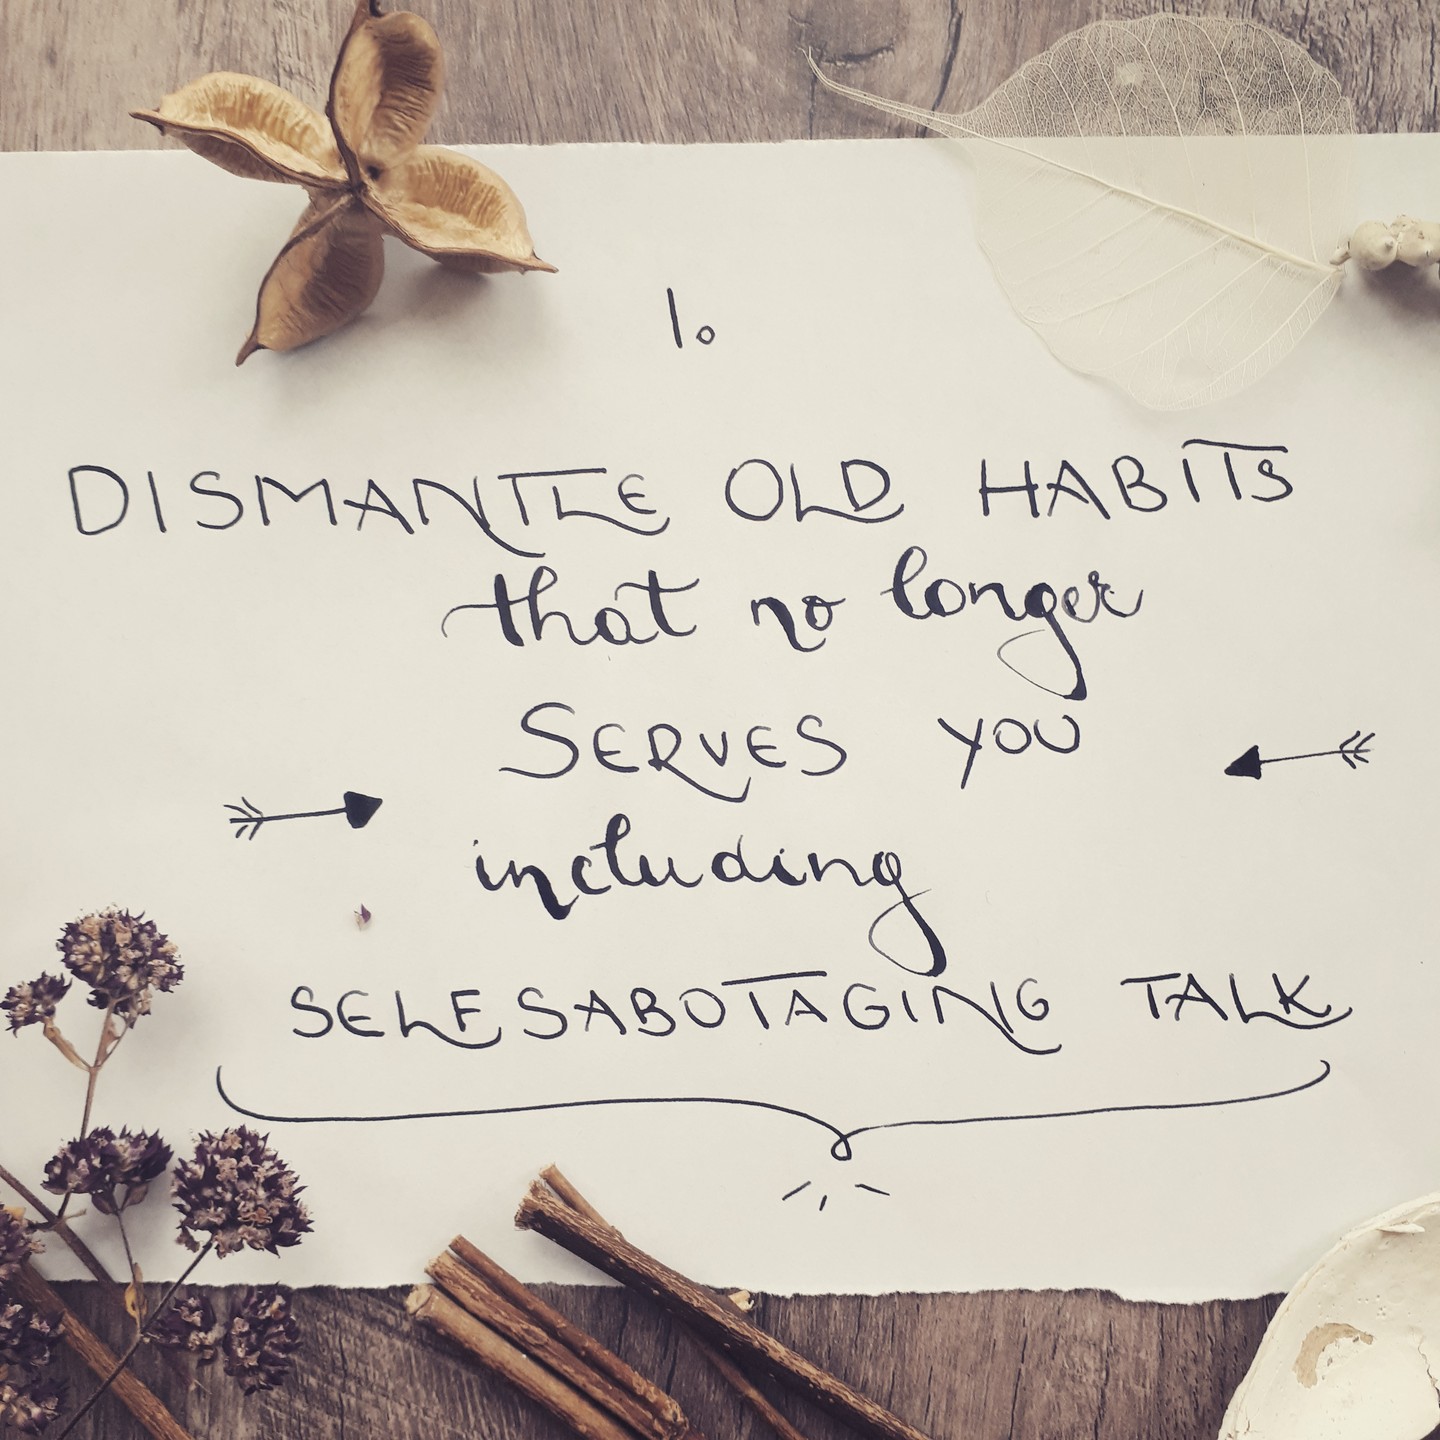 1.
DISMANTLE OLD HABITS
that no longer
SERVES YOU
including
SELFSABOTAGING TALK